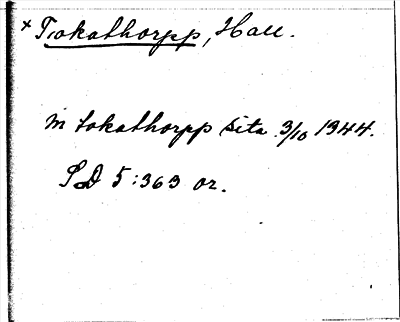 × Tokathorpp, Hall.
m tokathorpp sita 3/10 1344.
SD 5:363 or.